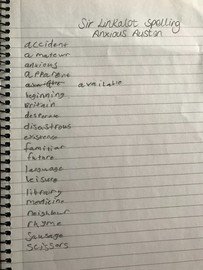 Sir Linkalot Spelling
Anxious Austin
accident
amateur
anxious
apparent
available
beginning
Britain
desperate
disastrous
existence
familiar
future
language
leisure
library
medicine
neighbour
rhyme
sausage
scissors